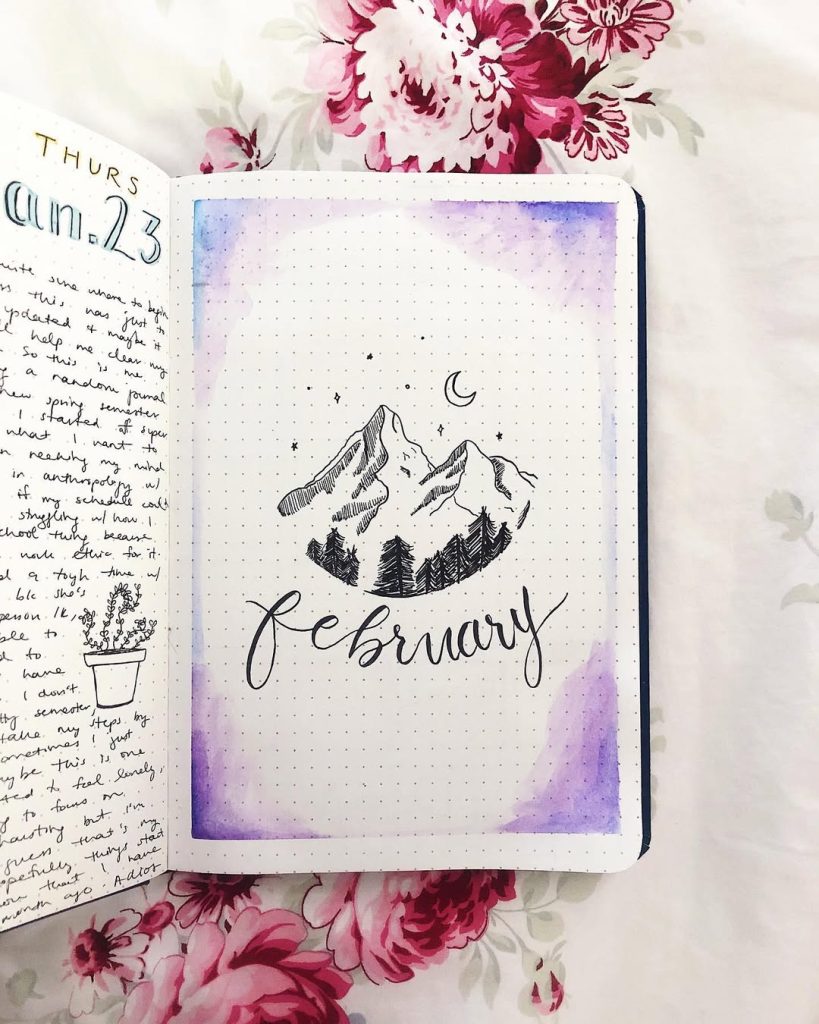 THURS
an.23
quite sure where to begin
ss this was just to
updated & maybe it
ll help me clear my
. So this is me
g a random journal
new spring semester
I started off super
what I want to
n reeling my mind
in anthropology w/
if my schedule could
struggling w/ how I
school thing because
work ethic for it.
d a tough time w/
b/c she's
person IK,
ble to
d to
have
. I don't
tty semester,
take my steps by
sometimes I just
maybe this is one
ted to feel lonely,
g to focus on
xhausting but I'm
guess that's my
hopefully things start
now that I have
month ago. Adios
february